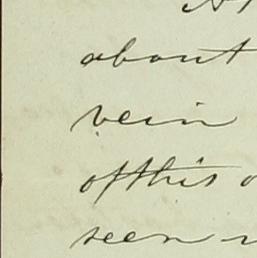 about
vein
of this
seen